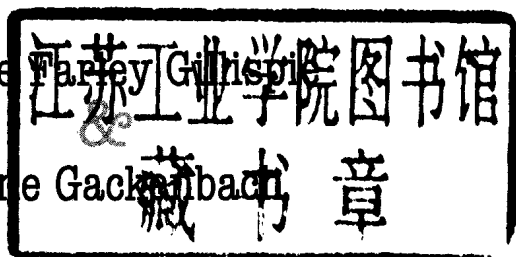 江苏工业学院图书馆
藏书章
e Farley Gillispie
&
ne Gackenbach